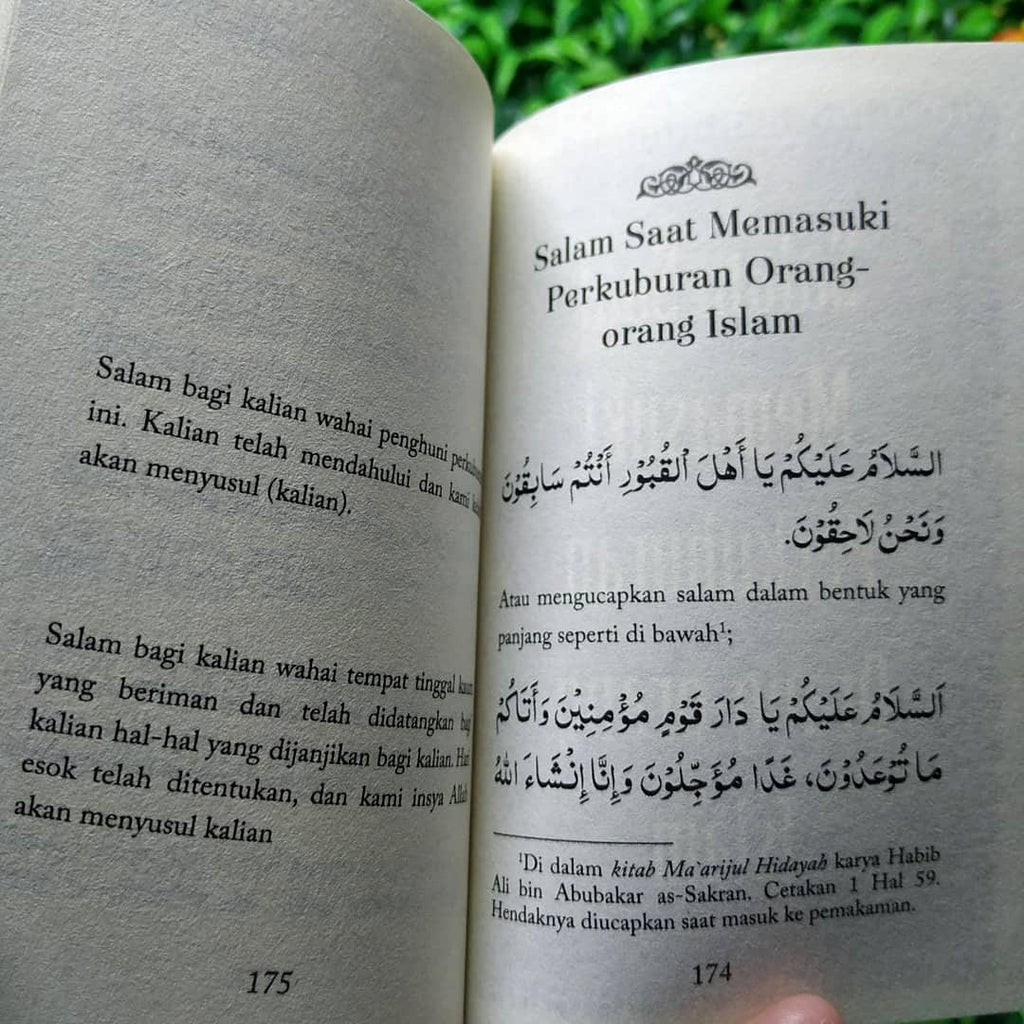 Salam Saat Memasuki
Perkuburan Orang-
orang Islam
السَّلَامُ عَلَيْكُمْ يَا أَهْلَ الْقُبُوْرِ أَنْتُمْ سَابِقُوْنَ
وَنَحْنُ لَاحِقُوْنَ.
Atau mengucapkan salam dalam bentuk yang
panjang seperti di bawah¹;
اَلسَّلَامُ عَلَيْكُمْ يَا دَارَ قَوْمٍ مُؤْمِنِيْنَ وَأَتَاكُمْ
مَا تُوْعَدُوْنَ، غَدًا مُؤَجَّلُوْنَ وَإِنَّا إِنْشَاءَ اللهُ
¹Di dalam kitab Ma`arijul Hidayah karya Habib
Ali bin Abubakar as-Sakran, Cetakan 1 Hal 59.
Hendaknya diucapkan saat masuk ke pemakaman.
174
Salam bagi kalian wahai penghuni
ini. Kalian telah mendahului dan kami
akan menyusul (kalian).
Salam bagi kalian wahai tempat tinggal kaum
yang beriman dan telah didatangkan bagi
kalian hal-hal yang dijanjikan bagi kalian. Hari
esok telah ditentukan, dan kami insya Allah
akan menyusul kalian
175